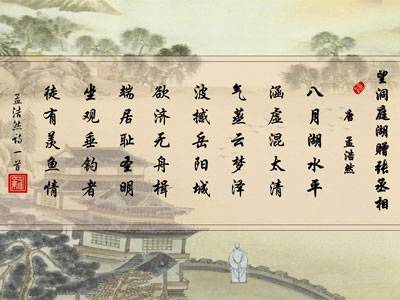 望洞庭湖赠张丞相
唐 孟浩然
八月湖水平
涵虚混太清
气蒸云梦泽
波撼岳阳城
欲济无舟楫
端居耻圣明
坐观垂钓者
徒有羡鱼情
孟浩然诗一首